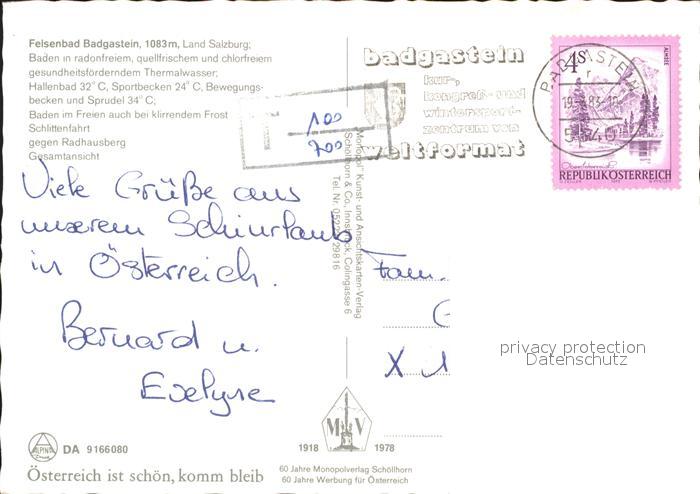 Felsenbad Badgastein, 1083m, Land Salzburg;
Baden in radonfreiem, quellfrischem und chlorfreiem
gesundheitsförderndem Thermalwasser;
Hallenbad 32°C, Sportbecken 24°C, Bewegungs-
becken und Sprudel 34°C;
Baden im Freien auch bei klirrendem Frost
Schlittenfahrt
gegen Radhausberg
Gesamtansicht
badgastein
kur-,
kongreß- und
wintersport-
zentrum von
weltformat
T
100
700
BADGASTEIN
4S
ALMSEE
REPUBLIK ÖSTERREICH
Viele Grüße aus
unserem Schiurlaub
in Österreich.
Bernard u.
Evelyne
Monopol Kunst- und Ansichtskarten-Verlag
Schöllhorn & Co., Innsbruck, Colingasse 6
Fam.
X
privacy protection
Datenschutz
ALPINA
DA 9166080
Österreich ist schön, komm bleib
MV
1918 1978
60 Jahre Monopolverlag Schöllhorn
60 Jahre Werbung für Österreich